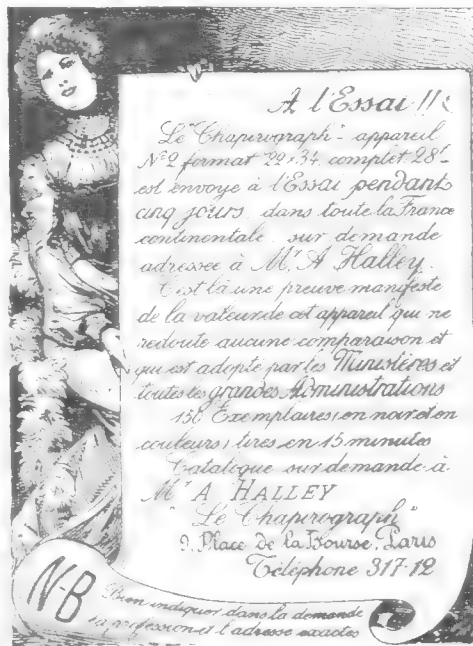 A l'Essai !!
Le "Chapirograph" appareil
N° 2 format 22 × 34 complet 28f
est envoyé à l'Essai pendant
cinq jours dans toute la France
continentale sur demande
adressée à Mr A Halley.
C'est là une preuve manifeste
de la valeur de cet appareil qui ne
redoute aucune comparaison et
qui est adopté par les Ministères et
toutes les grandes Administrations
150 Exemplaires (en noir et en
couleurs) tirés en 15 minutes
Catalogue sur demande à
Mr A HALLEY
"Le Chapirograph"
9, Place de la Bourse, Paris
Téléphone 317-12
N-B
Bien indiquer dans la demande
la profession et l'adresse exactes